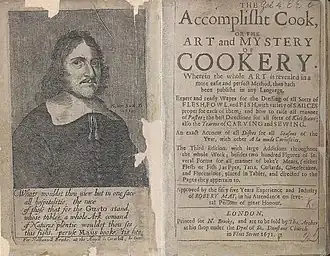 What! wouldst thou view but in one face
all hospitalitie, the race
of those that for the Gusto stand,
whose tables a whole Ark comand
of Nature's plentie wouldst thou see
this sight, peruse Mays booke, 'tis hee.
For Nathaniell Brooke, at the Angell in Cornhill,
THE
Accomplisht Cook,
OR THE
ART and MYSTERY
OF
COOKERY.
Wherein the whole ART is revealed in a
more easie and perfect Method, then hath
been publisht in any Language.
Expert and ready Wayes for the Dressing of all Sorts of
FLESH, FOWL, and FISH, with variety of SAUCES
proper for each of them; and how to raise all manner
of Pastes; the best Directions for all sorts of Kickshaws;
also the Tearms of CARVING and SEWING.
An exact Account of all Dishes for all Seasons of the
Year, with other A la mode Curiosities.
The Third Edition, with large Additions throughout
the whole Work; besides two hundred Figures of several
Forms for all manner of bak'd Meats, (either
Flesh or Fish) as Pyes, Tarts, Custards, Cheesecakes,
and Florentines, placed in Tables, and directed to the
Pages they appertain to.
Approved by the fifty five Years Experience and Industry
of ROBERT MAY, in his Attendance on several
Persons of great Honour.
LONDON,
Printed for N. Brooke, and are to be sold by
in Fleet Street 1671.